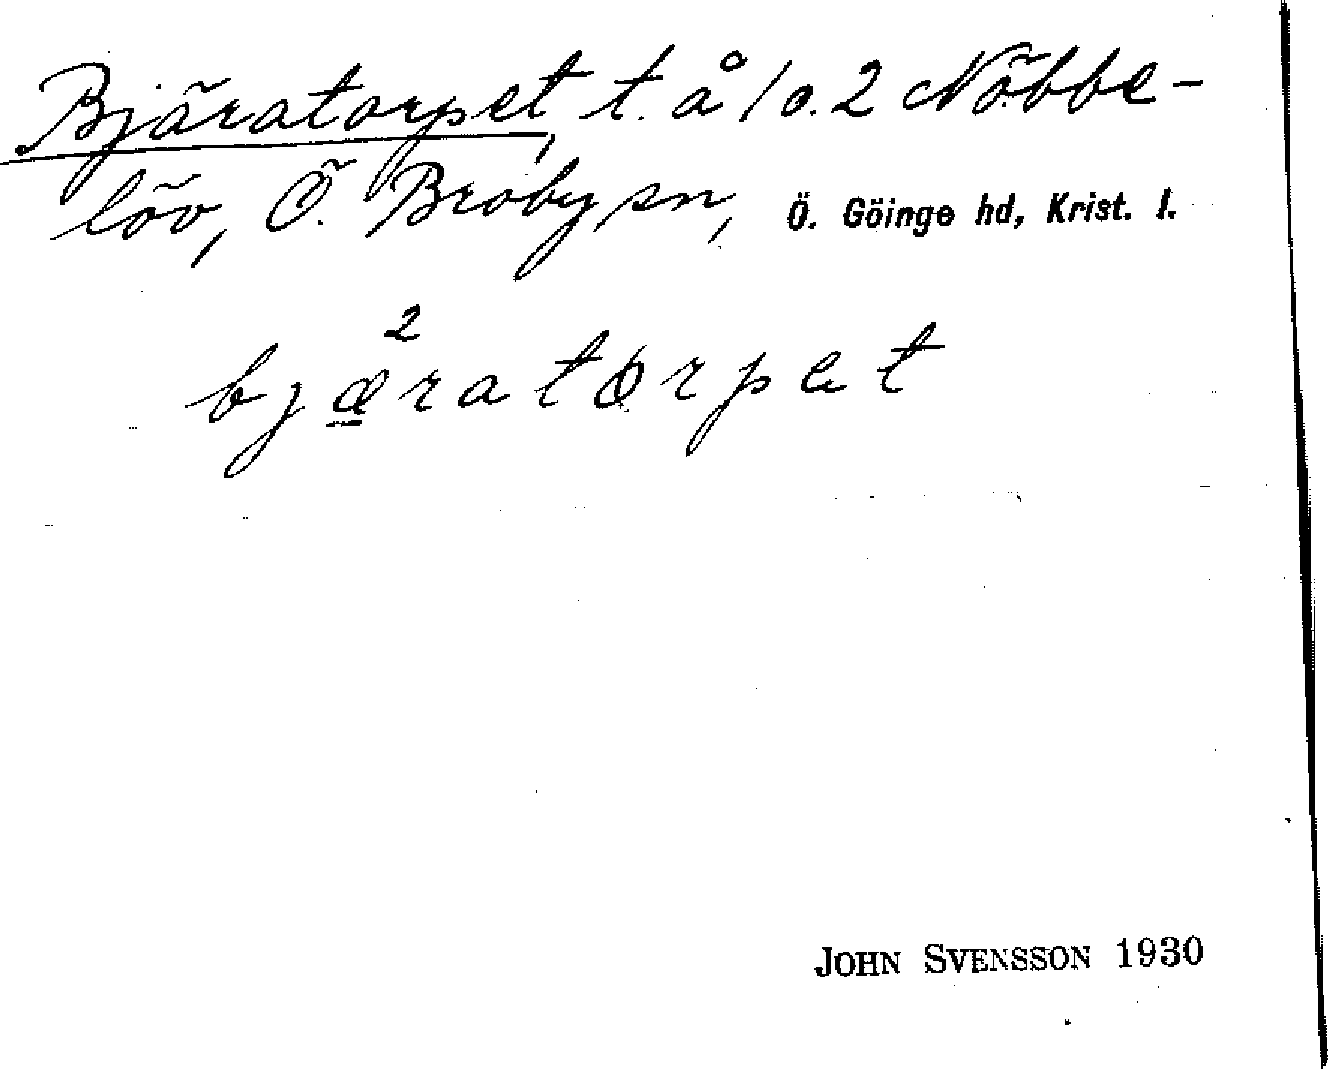 Bjäratorpet, t. å 1 o. 2 Nöbbe-
löv, Ö. Broby sn, Ö. Göinge hd, Krist. l.
2
bjæratørpet
JOHN SVENSSON 1930